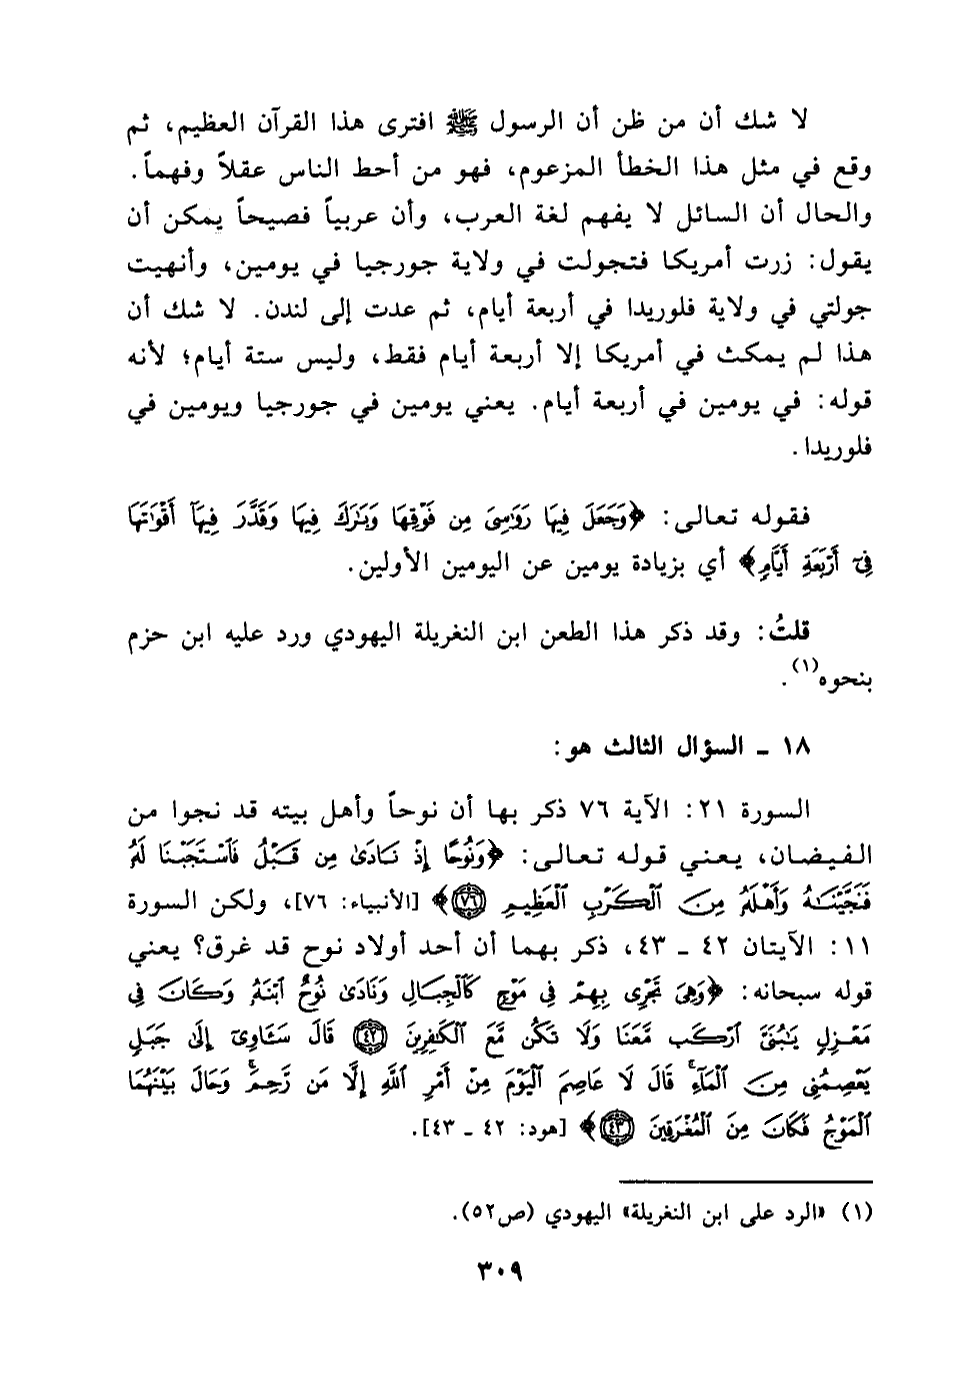 لا شك أن من ظن أن الرسول ﷺ افترى هذا القرآن العظيم، ثم
وقع في مثل هذا الخطأ المزعوم، فهو من أحط الناس عقلاً وفهماً.
والحال أن السائل لا يفهم لغة العرب، وأن عربياً فصيحاً يمكن أن
يقول: زرت أمريكا فتجولت في ولاية جورجيا في يومين، وأنهيت
جولتي في ولاية فلوريدا في أربعة أيام، ثم عدت إلى لندن. لا شك أن
هذا لم يمكث في أمريكا إلا أربعة أيام فقط، وليس ستة أيام؛ لأنه
قوله: في يومين في أربعة أيام. يعني يومين في جورجيا ويومين في
فلوريدا.
فقوله تعالى: ﴿وَجَعَلَ فِيهَا رَوَٰسِيَ مِن فَوْقِهَا وَبَٰرَكَ فِيهَا وَقَدَّرَ فِيهَآ أَقْوَٰتَهَا
فِىٓ أَرْبَعَةِ أَيَّامٍ﴾ أي بزيادة يومين عن اليومين الأولين.
قلتُ: وقد ذكر هذا الطعن ابن النغريلة اليهودي ورد عليه ابن حزم
بنحوه(١).
١٨ ـ السؤال الثالث هو:
السورة ٢١: الآية ٧٦ ذكر بها أن نوحاً وأهل بيته قد نجوا من
الفيضان، يعني قوله تعالى: ﴿وَنُوحًا إِذْ نَادَىٰ مِن قَبْلُ فَٱسْتَجَبْنَا لَهُۥ
فَنَجَّيْنَٰهُ وَأَهْلَهُۥ مِنَ ٱلْكَرْبِ ٱلْعَظِيمِ ۝٧٦﴾ [الأنبياء: ٧٦]، ولكن السورة
١١: الآيتان ٤٢ ـ ٤٣، ذكر بهما أن أحد أولاد نوح قد غرق؟ يعني
قوله سبحانه: ﴿وَهِىَ تَجْرِى بِهِمْ فِى مَوْجٍ كَٱلْجِبَالِ وَنَادَىٰ نُوحٌ ٱبْنَهُۥ وَكَانَ فِى
مَعْزِلٍ يَٰبُنَىَّ ٱرْكَب مَّعَنَا وَلَا تَكُن مَّعَ ٱلْكَٰفِرِينَ ۝٤٢ قَالَ سَـَٔاوِىٓ إِلَىٰ جَبَلٍ
يَعْصِمُنِى مِنَ ٱلْمَآءِ ۚ قَالَ لَا عَاصِمَ ٱلْيَوْمَ مِنْ أَمْرِ ٱللَّهِ إِلَّا مَن رَّحِمَ ۚ وَحَالَ بَيْنَهُمَا
ٱلْمَوْجُ فَكَانَ مِنَ ٱلْمُغْرَقِينَ ۝٤٣﴾ [هود: ٤٢ ـ ٤٣].
(١) «الرد على ابن النغريلة» اليهودي (ص٥٢).
٣٠٩